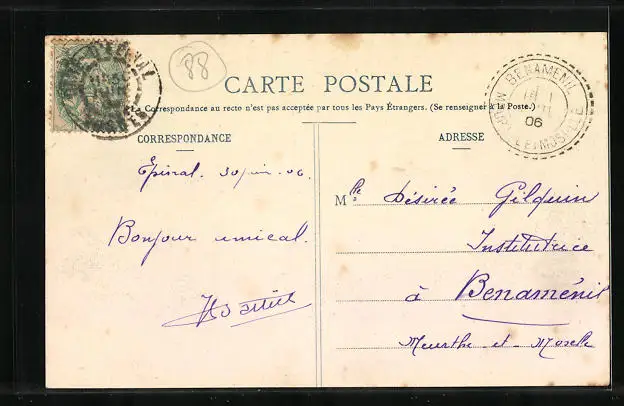 88
CARTE POSTALE
La Correspondance au recto n'est pas acceptée par tous les Pays Étrangers. (Se renseigner à la Poste.)
BENAMENIL
06
CORRESPONDANCE
ADRESSE
Épinal. 30 juin. 06.
Mlle Désirée Gilquin
Institutrice
Bonjour amical.
à Benaménil
Meurthe-et-Moselle